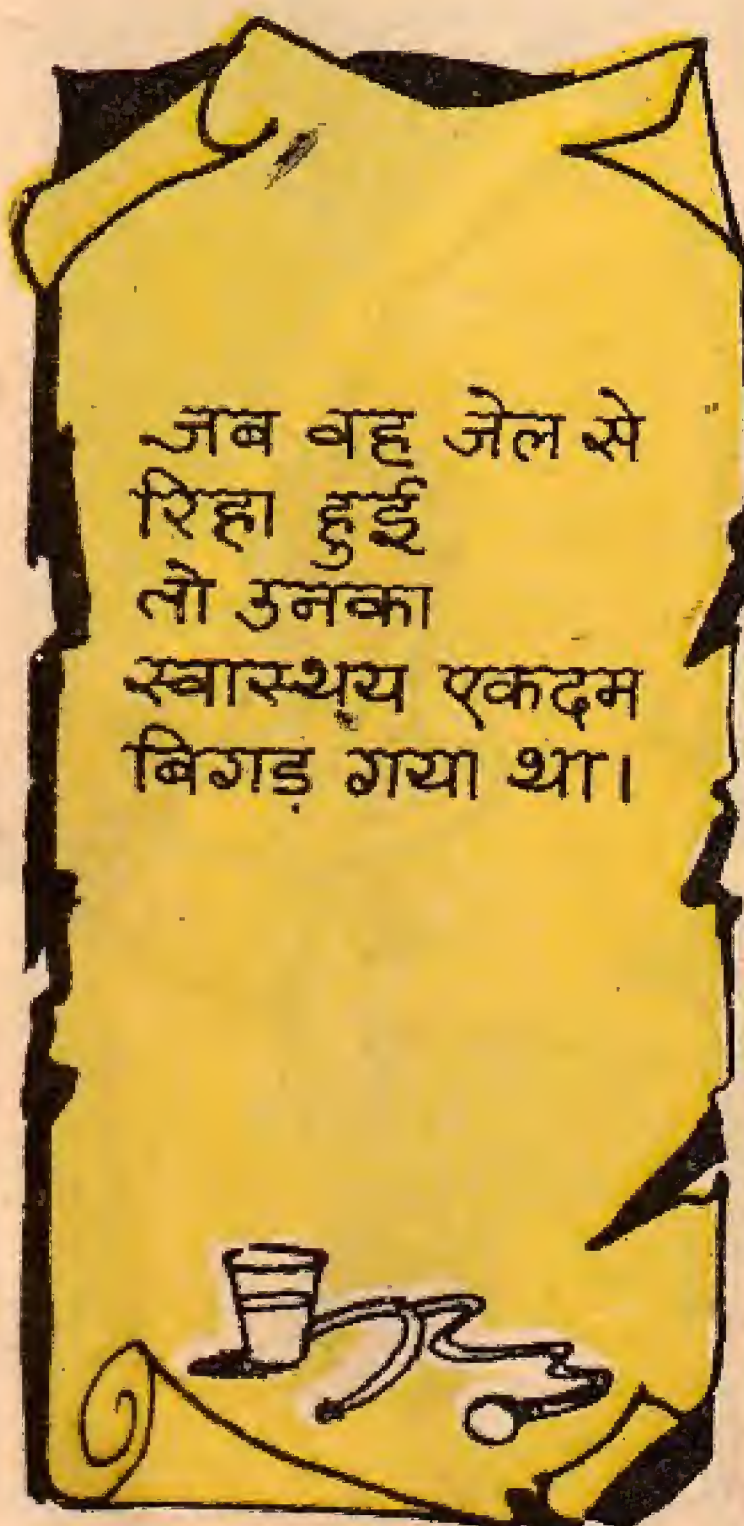 जब वह जेल से
रिहा हुई
तो उनका
स्वास्थ्य एकदम
बिगड़ गया था।